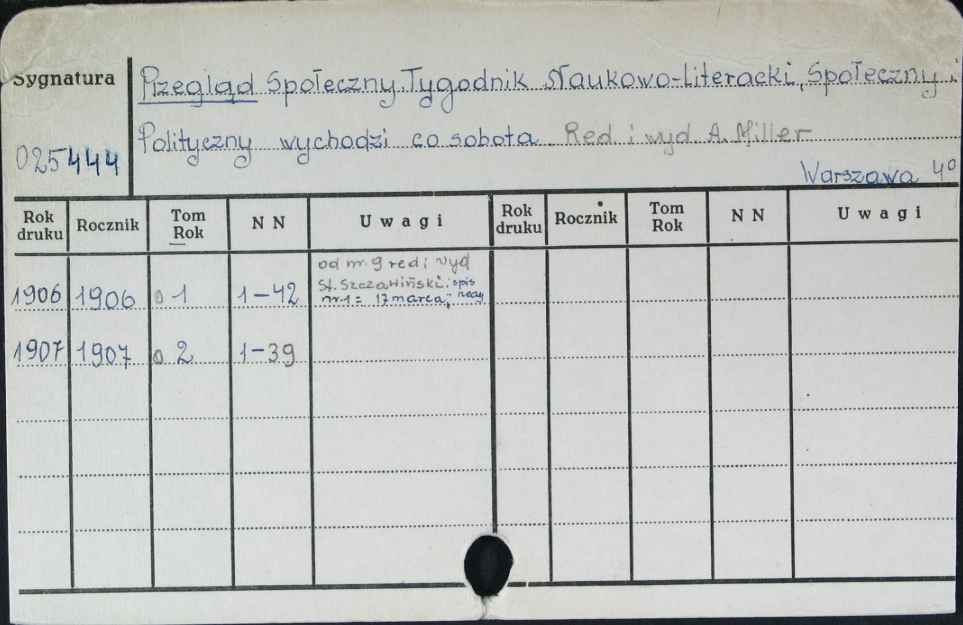 Sygnatura
Przegląd Społeczny. Tygodnik Naukowo-Literacki, Społeczny i
Polityczny wychodzi co sobota Red i wyd A. Miller
025444
Warszawa 4º
Rok druku Rocznik Tom Rok NN Uwagi Rok druku Rocznik Tom Rok NN Uwagi
od nr. 9 red i wyd
St. Szczawiński. spis
1906 1906 o 1 1-42 nr 1 = 17 marca;
1907 1907 o 2 1-39